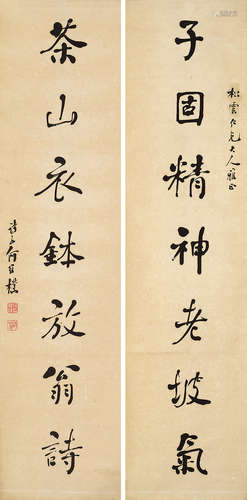 松雲仁兄大人雅正
子固精神老坡氣
茶山衣鉢放翁詩
何維樸